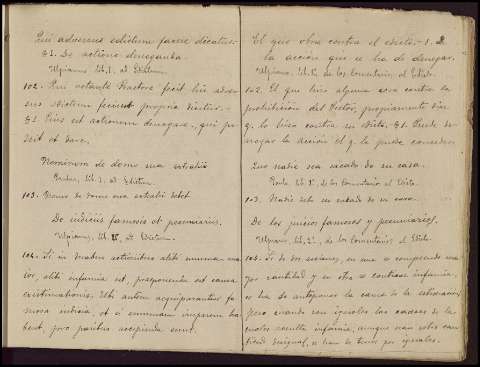 Qui adversus edictum fecisse dicatur.
§1. De actione deneganda.
Ulpianus, lib. 1, ad Edictum.
102. Qui vetante Praetore fecit, hic adver
sus edictum fecisse propriè dicitur.
§1. Ejus est actionem denegare, qui po
test et dare.
Neminem de domo sua extrahi
Paulus, lib. 1, ad Edictum.
103. Nemo de domo sua extrahi debet
De judiciis famosis et pecuniariis.
Ulpianus, lib. , ad Edictum.
104. Si in duabus actionibus alibi summa ma
jor, alibi infamia est, praeponenda est causa
existimationis. Ubi autem aequiparantur fa
mosa judicia, etsi summam imparem ha
bent, pro paribus accipienda sunt.
El que obra contra el edicto. 1. 
la acción que se ha de denegar.
Ulpiano, lib. 1, de los Comentario, al Edicto.
102. El que hizo alguna cosa contra la
prohibición del Pretor, propiamente se
q. lo hizo contra su edicto. §1. Puede de
negar la acción el q. la puede conceder.
Que nadie sea sacado de su casa.
Paulo, lib. 1º, de los Comentario al Edicto.
103. Nadie debe ser sacado de su casa.
De los juicios famosos y pecuniarios.
Ulpiano, lib. 2º, de los Comentario, al Edicto.
Si de dos acciones, en una se comprende ma
yor cantidad y en otra se contiene infamia,
se ha de anteponer la causa de la estimación;
pero cuando son iguales las causas de la
cuales resulta infamia, aunque sean sobre can
tidad desigual, se han de tener por iguales.